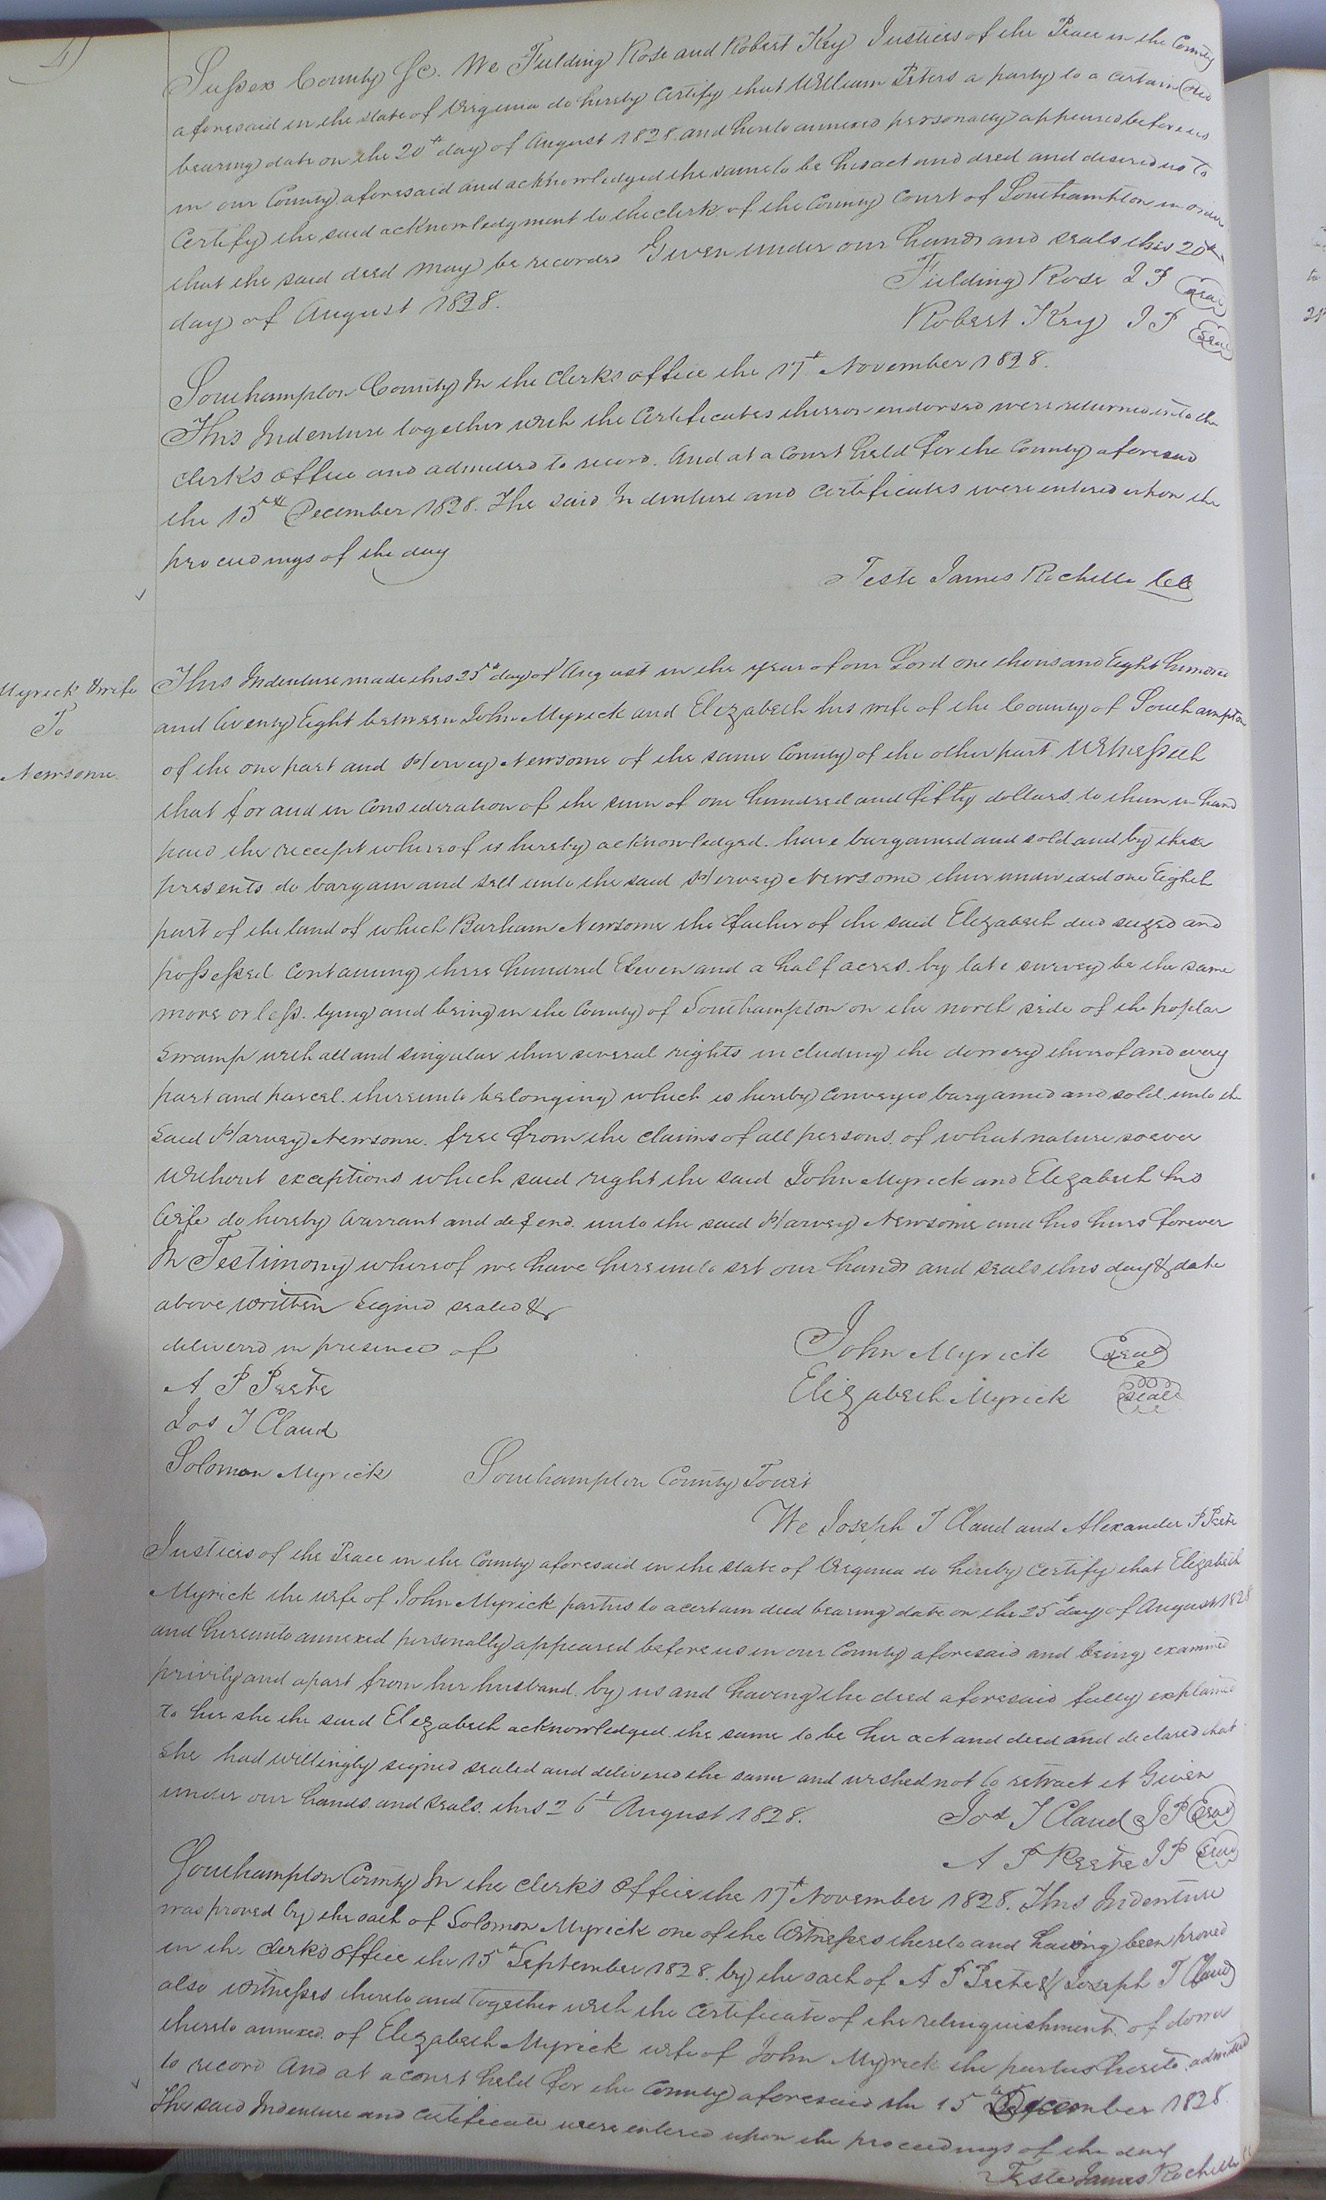 Sussex County Sc. We Fielding Rose and Robert Key Justices of the Peace in the County
aforesaid in the state of Virginia do hereby Certify that William Peters a party to a certain deed
bearing date on the 20th day of August 1828 and hereto annexed personally appeared before us
in our County aforesaid and acknowledged the same to be his act and deed and desired us to
Certify the said acknowledgment to the clerk of the County Court of Southampton in order
that the said deed may be recorded Given under our hands and seals this 20th
day of August 1828.
Fielding Rose J P seal
Robert Key J P seal
Southampton County In the Clerks office the 17th November 1828.
This Indenture together with the Certificates thereon endorsed were returned into the
clerks office and admitted to record. And at a Court held for the County aforesaid
the 15th December 1828. The said Indenture and Certificates were entered upon the
proceedings of the day
Teste James Rochelle
Myrick & wife
To
Newsome.
This Indenture made this 25th day of August in the year of our Lord one thousand Eight hundred
and twenty Eight between John Myrick and Elizabeth his wife of the County of Southampton
of the one part and Hervey Newsome of the same County of the other part Witnesseth
that for and in Consideration of the sum of one hundred and fifty dollars to them in hand
paid the receipt whereof is hereby acknowledged. have bargained and sold and by these
presents do bargain and sell unto the said Hervey Newsome their undivided one Eighth
part of the land of which Barham Newsome the father of the said Elizabeth died seized and
possessed Containing three hundred Eleven and a half acres by late survey be the same
more or less. lying and being in the County of Southampton on the north side of the poplar
Swamp with all and singular their several rights including the dowery thereof and every
part and parcel thereunto belonging which is hereby Conveyed bargained and sold unto the
said Harvey Newsome. free from the claims of all persons of what nature soever
without exceptions which said right the said John Myrick and Elizabeth his
wife do hereby warrant and defend unto the said Harvey Newsome and his heirs forever
In Testimony whereof we have hereunto set our hands and seals this day & date
above written Signed sealed &
delivered in presence of
John Myrick seal
A P Peete
Elizabeth Myrick seal
Jos T Claud
Solomon Myrick
Southampton County
We Joseph T Claud and Alexander P Peete
Justices of the Peace in the County aforesaid in the state of Virginia do hereby Certify that Elizabeth
Myrick the wife of John Myrick parties to a certain deed bearing date on the 25th day of August 1828
and hereunto annexed personally appeared before us in our County aforesaid and being examined
privily and apart from her husband by us and having the deed aforesaid fully explained
to her she the said Elizabeth acknowledged the same to be her act and deed and declared that
she had willingly signed sealed and delivered the same and wished not to retract it Given
under our hands and seals this 26th August 1828.
Jos T Claud J P seal
A P Peete J P seal
Southampton County In the Clerk's Office the 17th November 1828. This Indenture
was proved by the oath of Solomon Myrick one of the Witnesses thereto and having been proved
in the Clerk's Office the 15th September 1828. by the oath of A P Peete & Joseph T Claud
also witnesses thereto and together with the Certificate of the relinquishment of dower
thereto annexed of Elizabeth Myrick wife of John Myrick the parties hereto admitted
to record And at a court held for the County aforesaid the 15th December 1828.
The said Indenture and certificate were entered upon the proceedings of the day
Teste James Rochelle